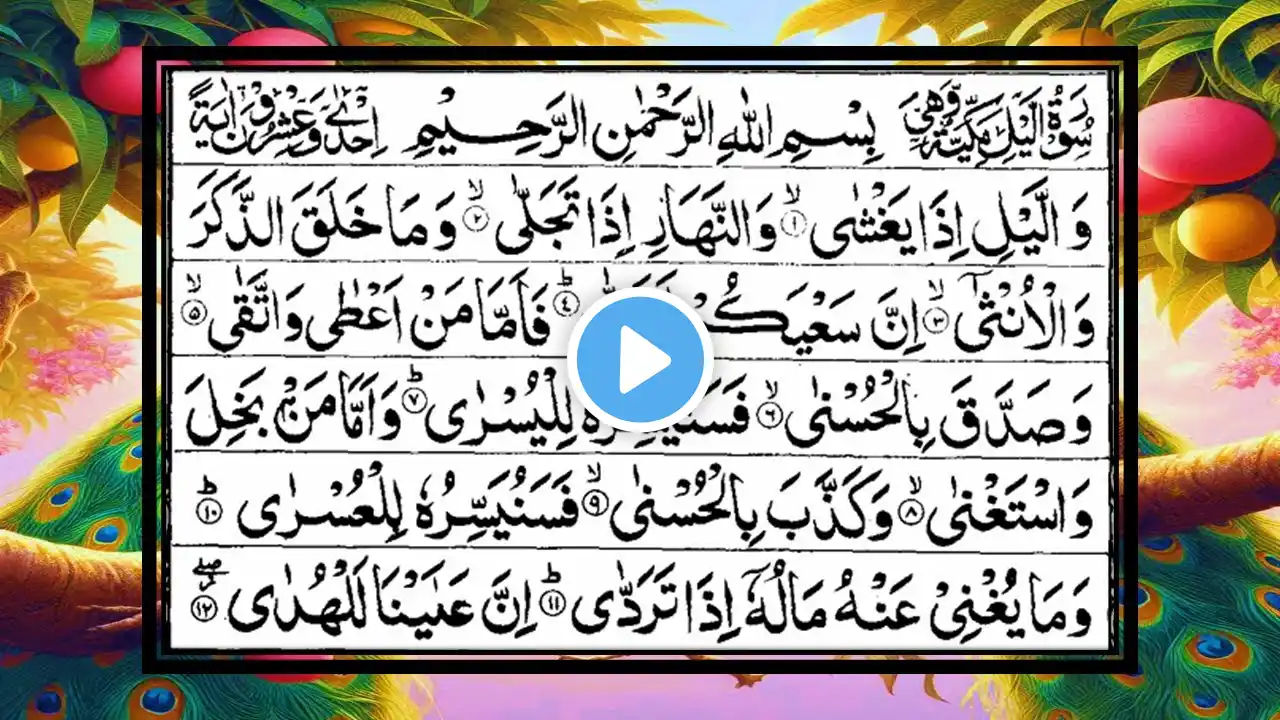 سُوْرَةُ الَّيْلِ مَكِّيَّةٌ وَّهِيَ بِسْمِ اللهِ الرَّحْمٰنِ الرَّحِيْمِ اِحْدٰى وَّعِشْرُوْنَ اٰيَةً
وَ الَّيْلِ اِذَا يَغْشٰى ۙ﴿۱﴾ وَ النَّهَارِ اِذَا تَجَلّٰى ۙ﴿۲﴾ وَ مَا خَلَقَ الذَّكَرَ
وَ الْاُنْثٰۤى ۙ﴿۳﴾ اِنَّ سَعْيَكُمْ ؕ﴿۴﴾ فَاَمَّا مَنْ اَعْطٰى وَ اتَّقٰى ۙ﴿۵﴾
وَ صَدَّقَ بِالْحُسْنٰى ۙ﴿۶﴾ فَسَنُيَسِّرُهٗ لِلْيُسْرٰى ؕ﴿۷﴾ وَ اَمَّا مَنْۢ بَخِلَ
وَ اسْتَغْنٰى ۙ﴿۸﴾ وَ كَذَّبَ بِالْحُسْنٰى ۙ﴿۹﴾ فَسَنُيَسِّرُهٗ لِلْعُسْرٰى ؕ﴿۱۰﴾
وَ مَا يُغْنِيْ عَنْهُ مَالُهٗۤ اِذَا تَرَدّٰى ؕ﴿۱۱﴾ اِنَّ عَلَيْنَا لَلْهُدٰى ۖ﴿۱۲﴾